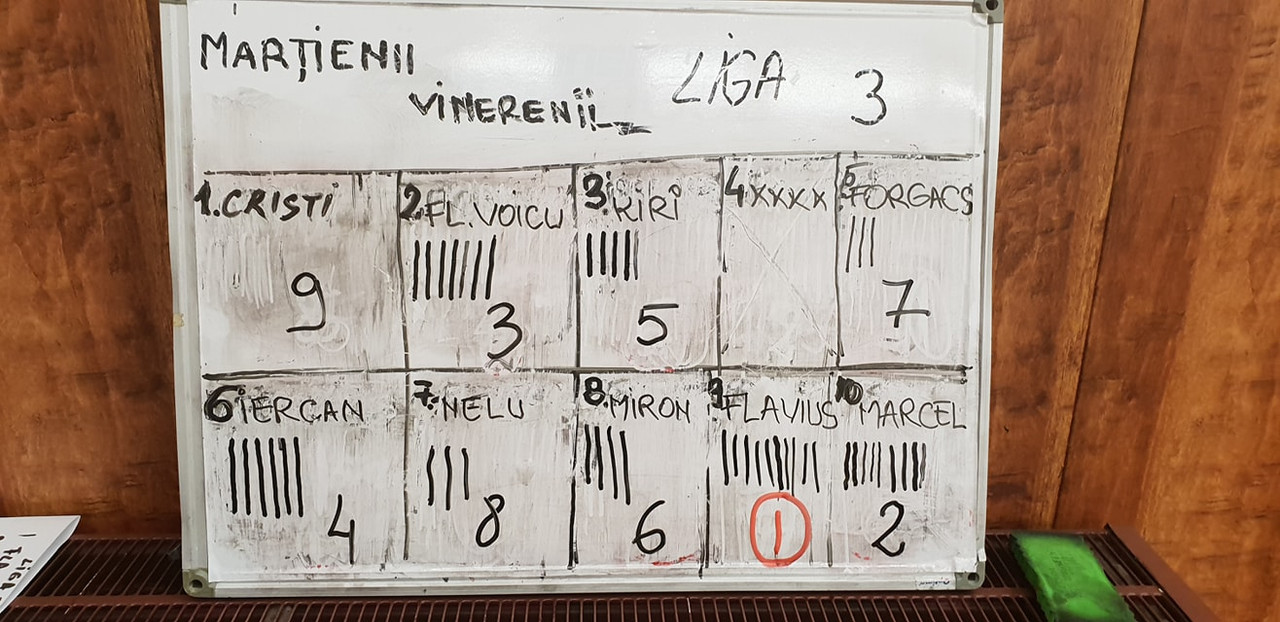 MARȚIENII
VINERENII
LIGA 3
1. CRISTI
9
2. FL. VOICU
3
3. KIRI
5
4 XXXX
5. FORGACS
7
6 IERCAN
4
7. NELU
8
8. MIRON
6
9. FLAVIUS
1
10 MARCEL
2
LIGA